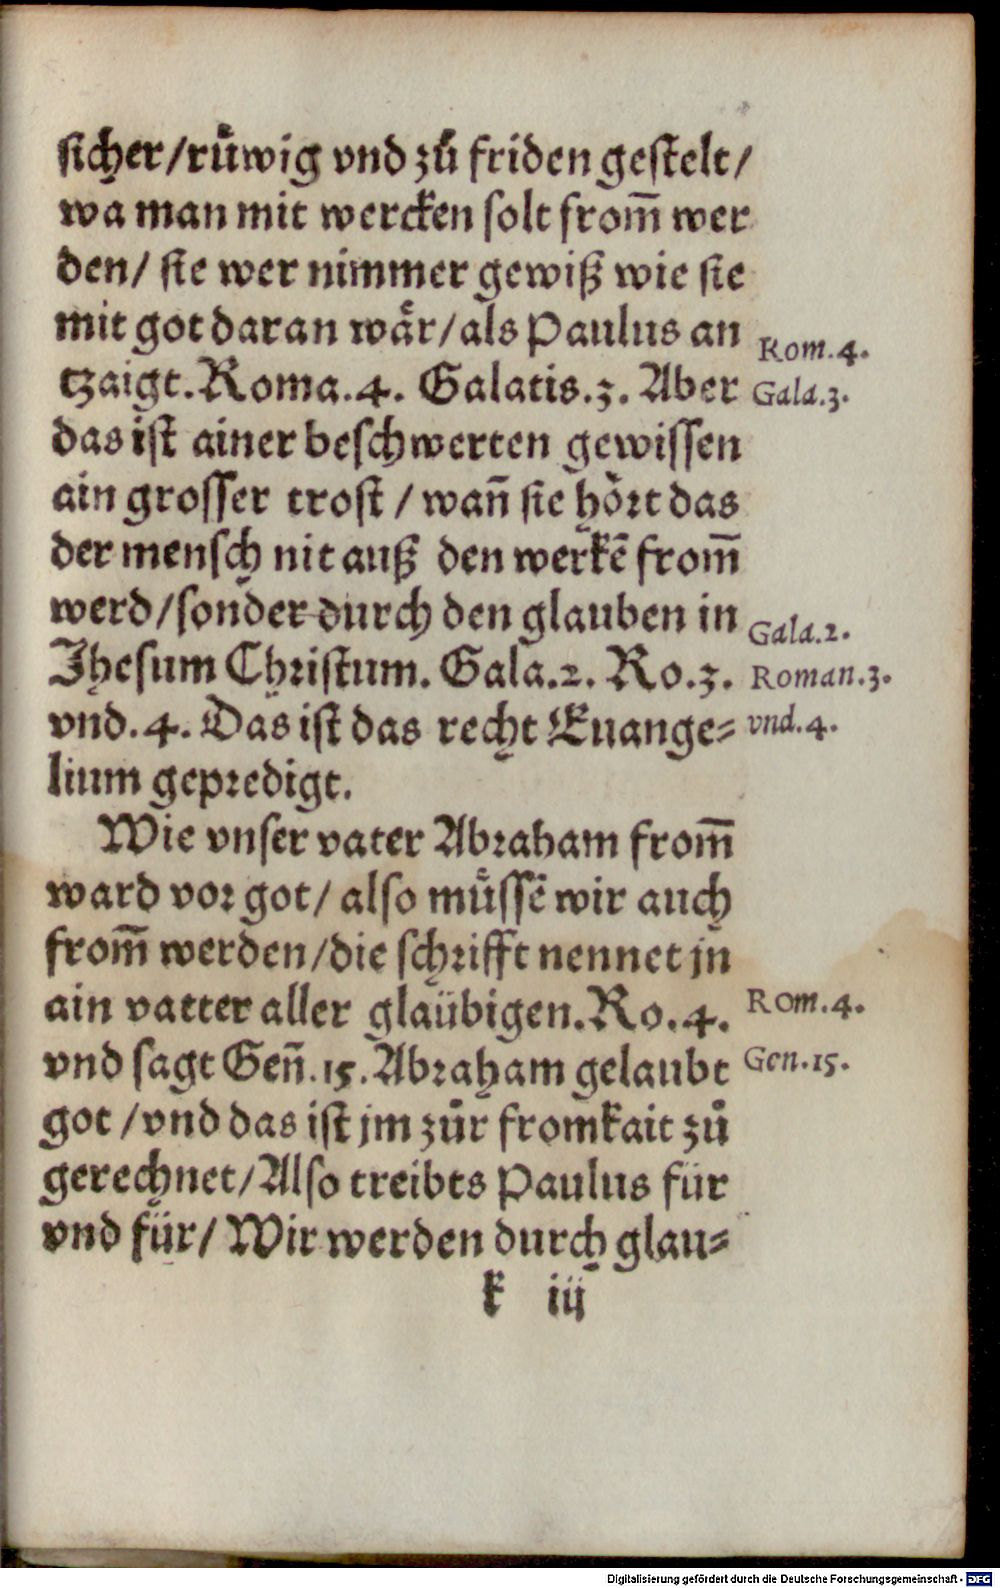 sicher/růwig vnd zů friden gestelt/
wa man mit wercken solt from̄ wer
den/ sie wer nimmer gewiß wie sie
mit got daran wår/als Paulus an
Rom.4.
tzaigt.Roma.4. Galatis.3. Aber
Gala.3.
das ist ainer beschwerten gewissen
ain grosser trost / wan̄ sie hŏrt das
der mensch nit auß den werkē from̄
werd/sonder durch den glauben in
Gala.2.
Jhesum Christum. Gala.2. Ro.3.
Roman.3.
vnd.4. Das ist das recht Euange⸗
vnd.4.
lium gepredigt.
Wie vnser vater Abraham from̄
ward vor got/ also můssē wir auch
from̄ werden/die schrifft nennet jn
ain vatter aller glaübigen.Ro.4.
Rom.4.
vnd sagt Gen̄.15.Abraham gelaubt
Gen.15.
got /vnd das ist jm zůr fromkait zů
gerechnet/Also treibts Paulus für
vnd für/ Wir werden durch glau⸗
k iij
Digitalisierung gefördert durch die Deutsche Forschungsgemeinschaft - DFG